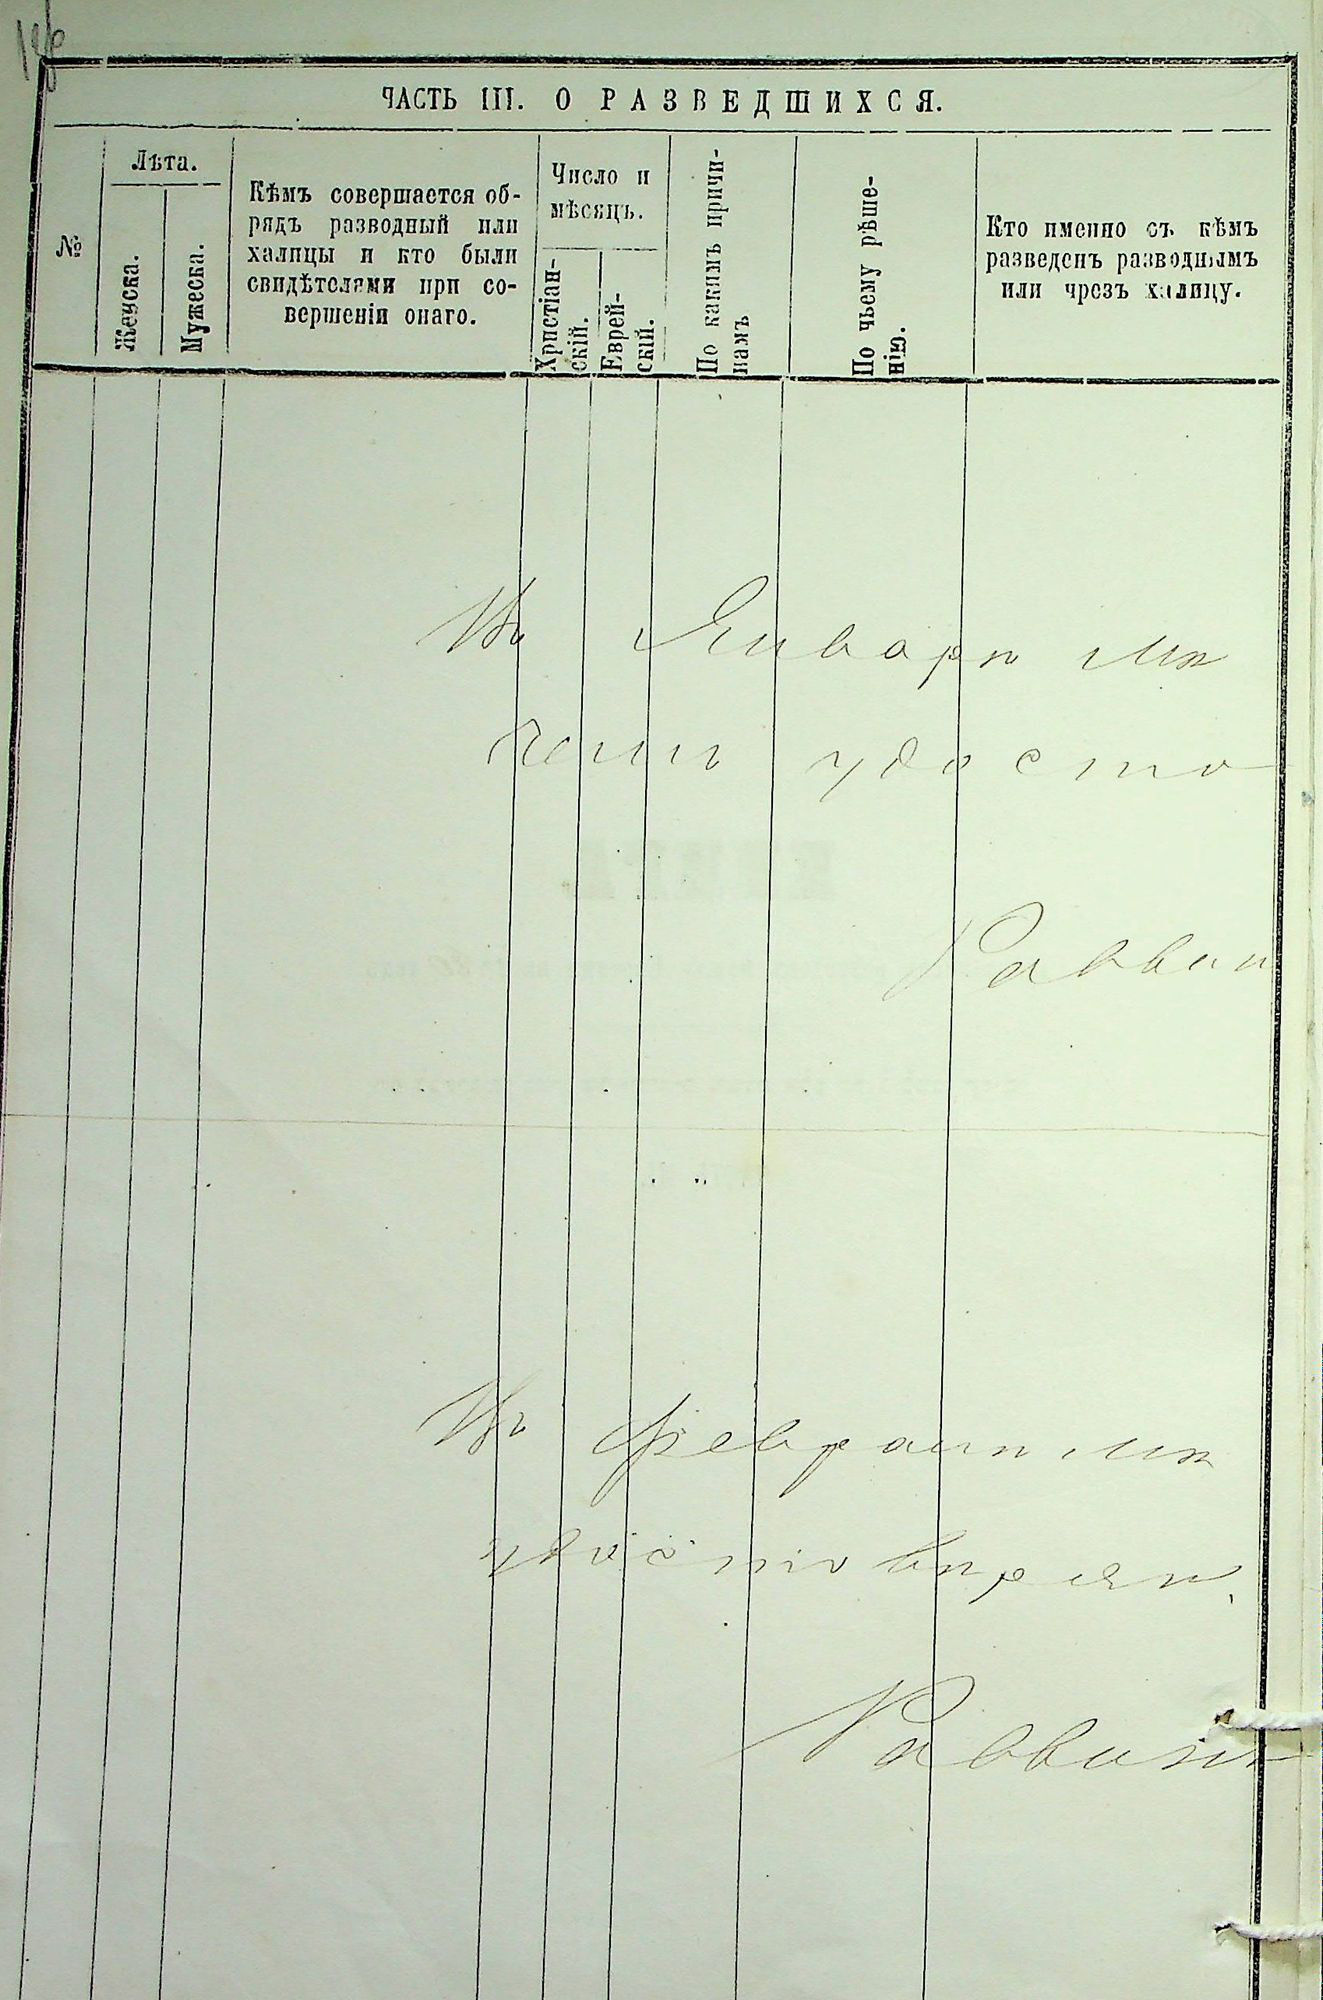 ЧАСТЬ III. О РАЗВЕДШИХСЯ.
№
Лѣта.
Женска.
Мужеска.
Кѣмъ совершается об-
рядъ разводный или
халицы и кто были
свидѣтелями при со-
вершеніи онаго.
Число и
мѣсяцъ.
Христіан-
скій.
Еврей-
скій.
По какимъ причи-
намъ
По чьему рѣше-
нію.
Кто именно съ кѣмъ
разведенъ разводнымъ
или чрезъ халицу.
Въ Январѣ мѣ
чемъ удосто
Раввин
Въ Февралѣ мѣ
удостовѣряю.
Раввинъ